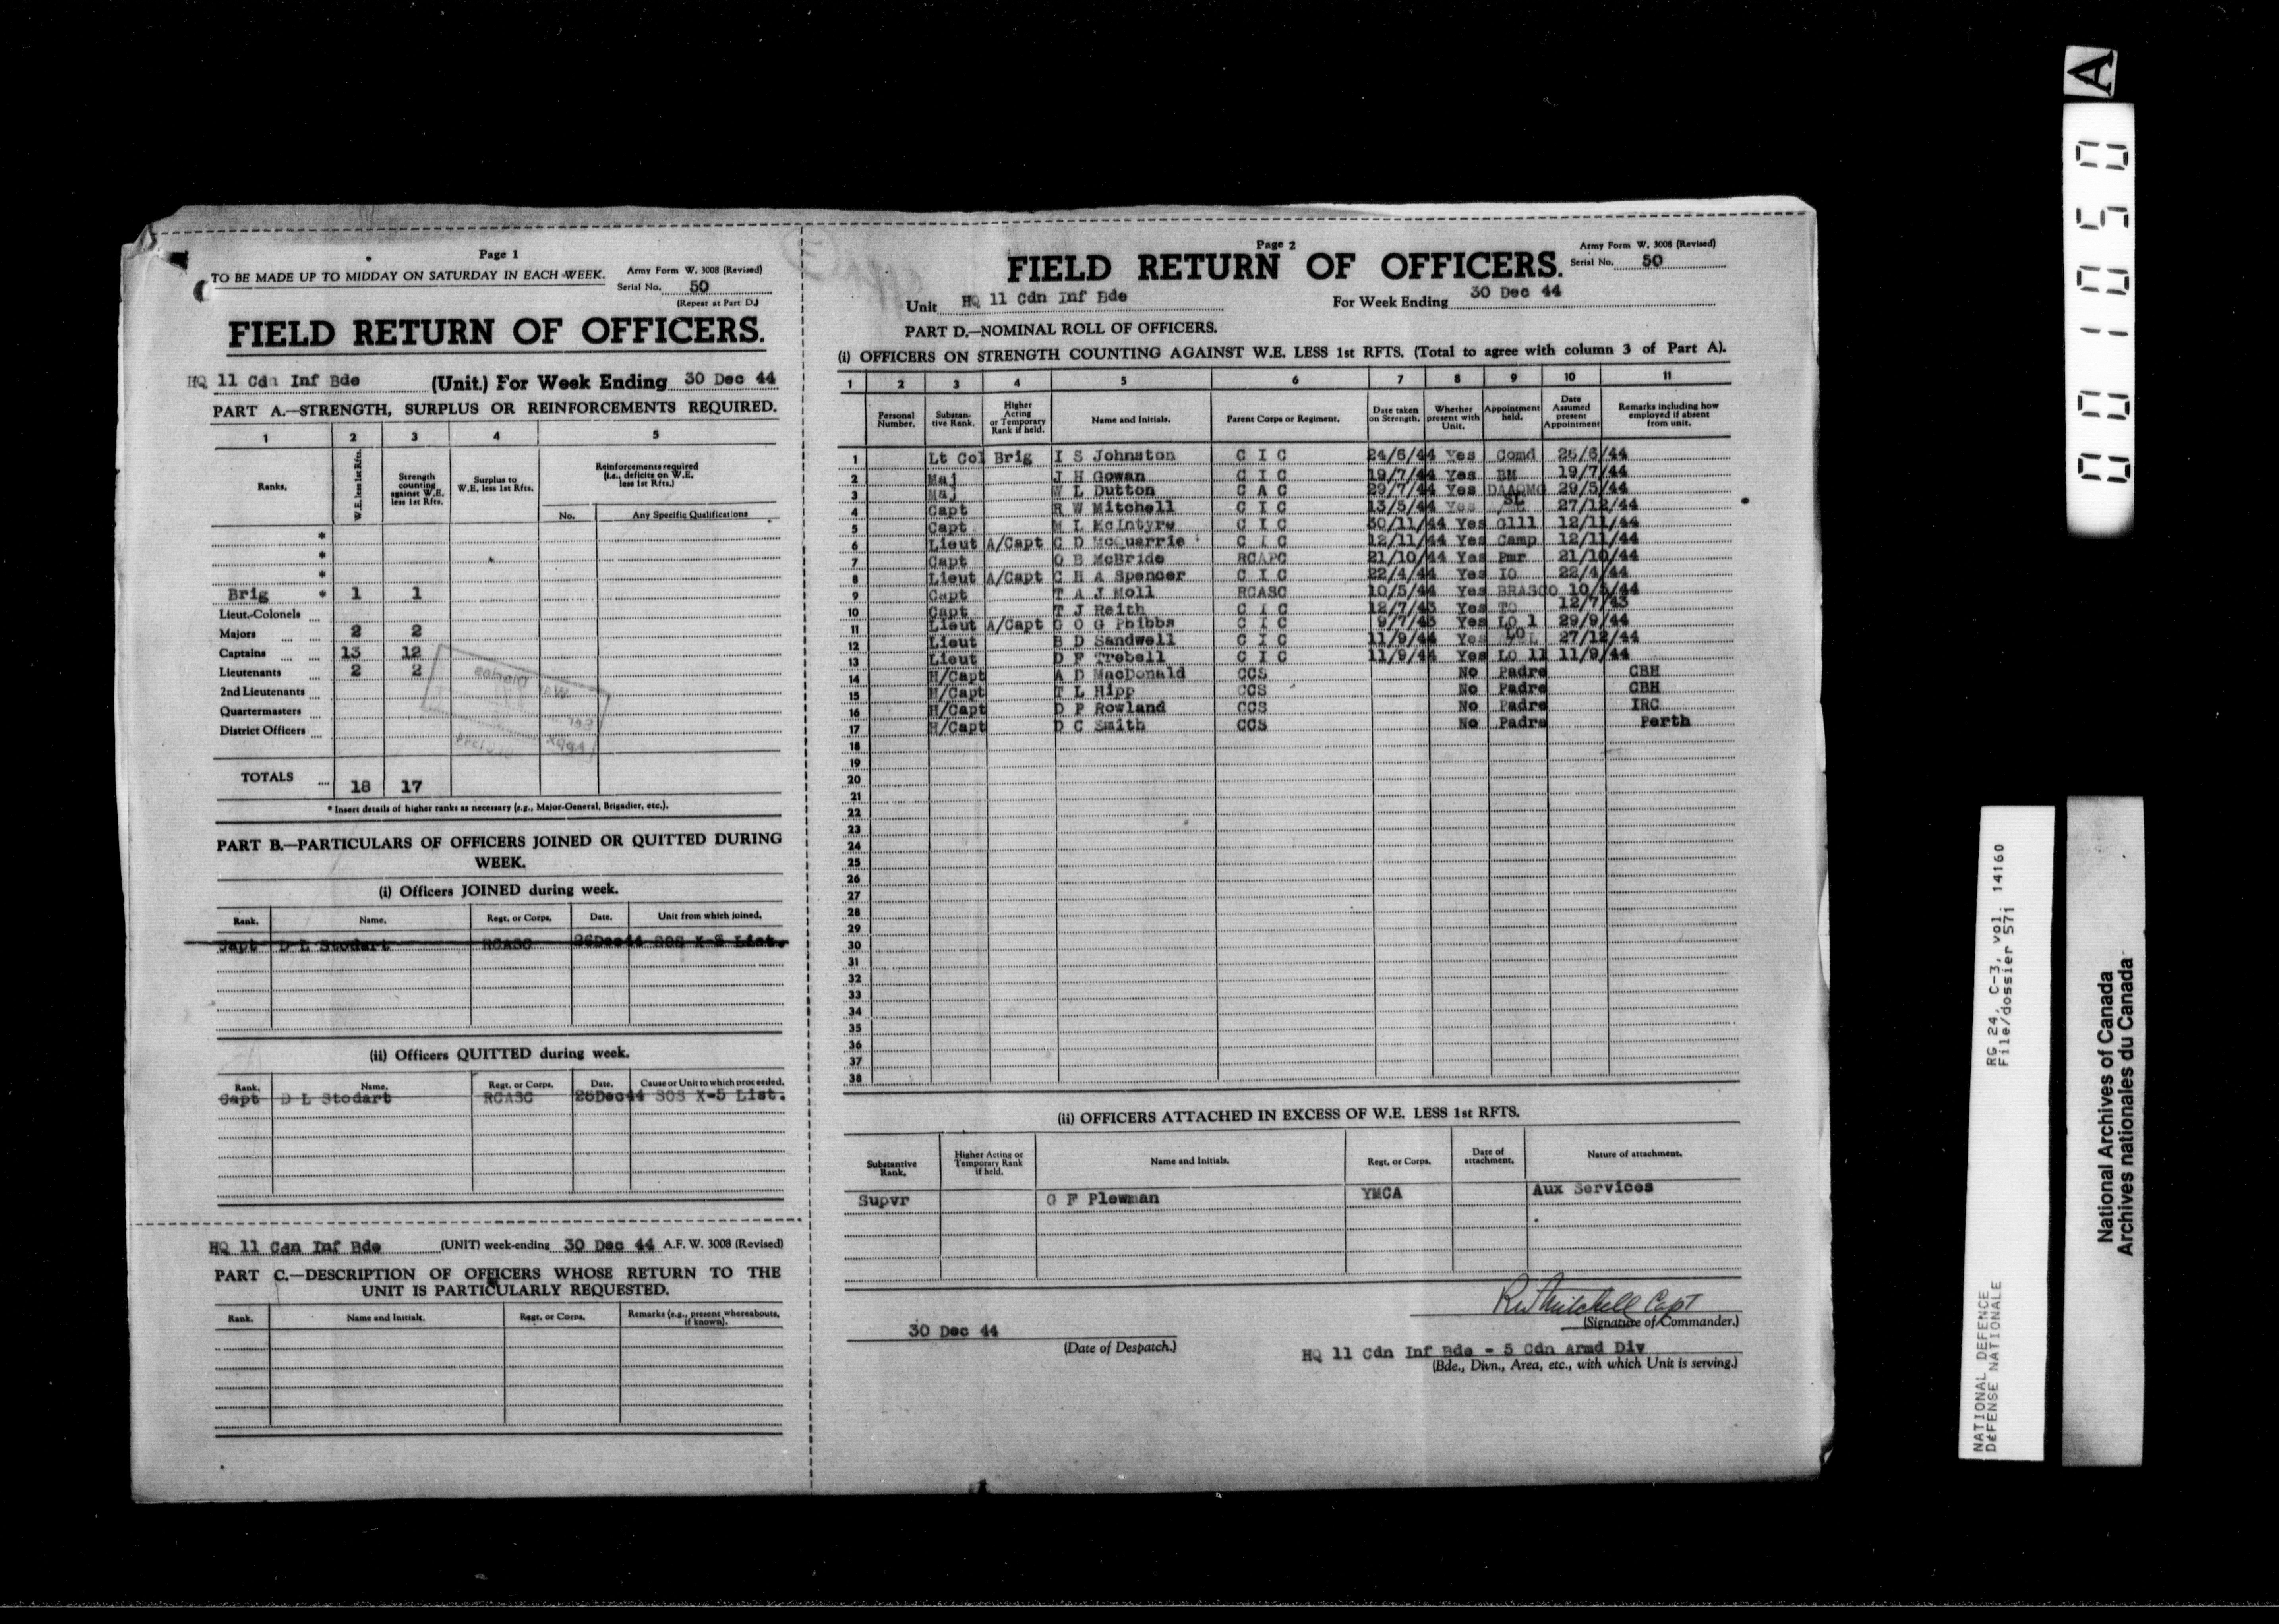 Page 1
TO BE MADE UP TO MIDDAY ON SATURDAY IN EACH WEEK.
Army Form W. 3008 (Revised)
Serial No. 50
(Repeat at Part D.)
FIELD RETURN OF OFFICERS.
HQ 11 Cdn Inf Bde (Unit.) For Week Ending 30 Dec 44
PART A.—STRENGTH, SURPLUS OR REINFORCEMENTS REQUIRED.
1 2 3 4 5
Ranks. W.E. less 1st Rfts. Strength counting against W.E. less 1st Rfts. Surplus to W.E. less 1st Rfts. Reinforcements required (i.e., deficits on W.E. less 1st Rfts.)
No. Any Specific Qualifications
*
*
*
Brig * 1 1
Lieut.-Colonels ...
Majors ... ... 2 2
Captains ... ... 13 12
Lieutenants ... 2 2
2nd Lieutenants ...
Quartermasters ...
District Officers ...
TOTALS .... 18 17
* Insert details of higher ranks as necessary (e.g., Major-General, Brigadier, etc.).
PART B.—PARTICULARS OF OFFICERS JOINED OR QUITTED DURING
WEEK.
(i) Officers JOINED during week.
Rank. Name. Regt. or Corps. Date. Unit from which joined.
Capt D L Stodart RCASC 26Dec44 SOS X-5 List.
(ii) Officers QUITTED during week.
Rank. Name. Regt. or Corps. Date. Cause or Unit to which proceeded.
Capt D L Stodart RCASC 26Dec44 SOS X-5 List.
HQ 11 Cdn Inf Bde (UNIT) week-ending 30 Dec 44 A.F. W. 3008 (Revised)
PART C.—DESCRIPTION OF OFFICERS WHOSE RETURN TO THE
UNIT IS PARTICULARLY REQUESTED.
Rank. Name and Initials. Regt. or Corps. Remarks (e.g., present whereabouts, if known).
Page 2
Army Form W. 3008 (Revised)
FIELD RETURN OF OFFICERS.
Serial No. 50
Unit HQ 11 Cdn Inf Bde For Week Ending 30 Dec 44
PART D.—NOMINAL ROLL OF OFFICERS.
(i) OFFICERS ON STRENGTH COUNTING AGAINST W.E. LESS 1st RFTS. (Total to agree with column 3 of Part A).
1 2 3 4 5 6 7 8 9 10 11
Personal Number. Substantive Rank. Higher Acting or Temporary Rank if held. Name and Initials. Parent Corps or Regiment. Date taken on Strength. Whether present with Unit. Appointment held. Date Assumed present Appointment Remarks including how employed if absent from unit.
1 Lt Col Brig I S Johnston C I C 24/6/44 Yes Comd 25/6/44
2 Maj J H Gowan C I C 19/7/44 Yes BM 19/7/44
3 Maj W L Dutton C A C 29/7/44 Yes DAAQMG 29/5/44
4 Capt R W Mitchell C I C 13/5/44 Yes SC 27/12/44
5 Capt M L McIntyre C I C 30/11/44 Yes G111 12/11/44
6 Lieut A/Capt C D McQuarrie C I C 12/11/44 Yes Camp 12/11/44
7 Capt O B McBride RCAPC 21/10/44 Yes Pmr 21/10/44
8 Lieut A/Capt C H A Spencer C I C 22/4/44 Yes IO 22/4/44
9 Capt T A J Moll RCASC 10/5/44 Yes BRASCO 10/5/44
10 Capt T J Reith C I C 12/7/43 Yes TO 12/7/43
11 Lieut A/Capt G O G Phibbs C I C 9/7/43 Yes LO 1 29/9/44
12 Lieut B D Sandwell C I C 11/9/44 Yes LO 27/12/44
13 Lieut D F Trebell C I C 11/9/44 Yes LO 11 11/9/44
14 H/Capt A D MacDonald CCS No Padre CBH
15 H/Capt T L Hipp CCS No Padre CBH
16 H/Capt D P Rowland CCS No Padre IRC
17 H/Capt D C Smith CCS No Padre Perth
18
19
20
21
22
23
24
25
26
27
28
29
30
31
32
33
34
35
36
37
38
(ii) OFFICERS ATTACHED IN EXCESS OF W.E. LESS 1st RFTS.
Substantive Rank. Higher Acting or Temporary Rank if held. Name and Initials. Regt. or Corps. Date of attachment. Nature of attachment.
Supvr G F Plewman YMCA Aux Services
RW Mitchell Capt
(Signature of Commander.)
30 Dec 44
(Date of Despatch.)
HQ 11 Cdn Inf Bde - 5 Cdn Armd Div
(Bde., Divn., Area, etc., with which Unit is serving.)
A
001050
NATIONAL DEFENCE RG 24, C-3, vol. 14160
DÉFENSE NATIONALE File/dossier 571
National Archives of Canada
Archives nationales du Canada